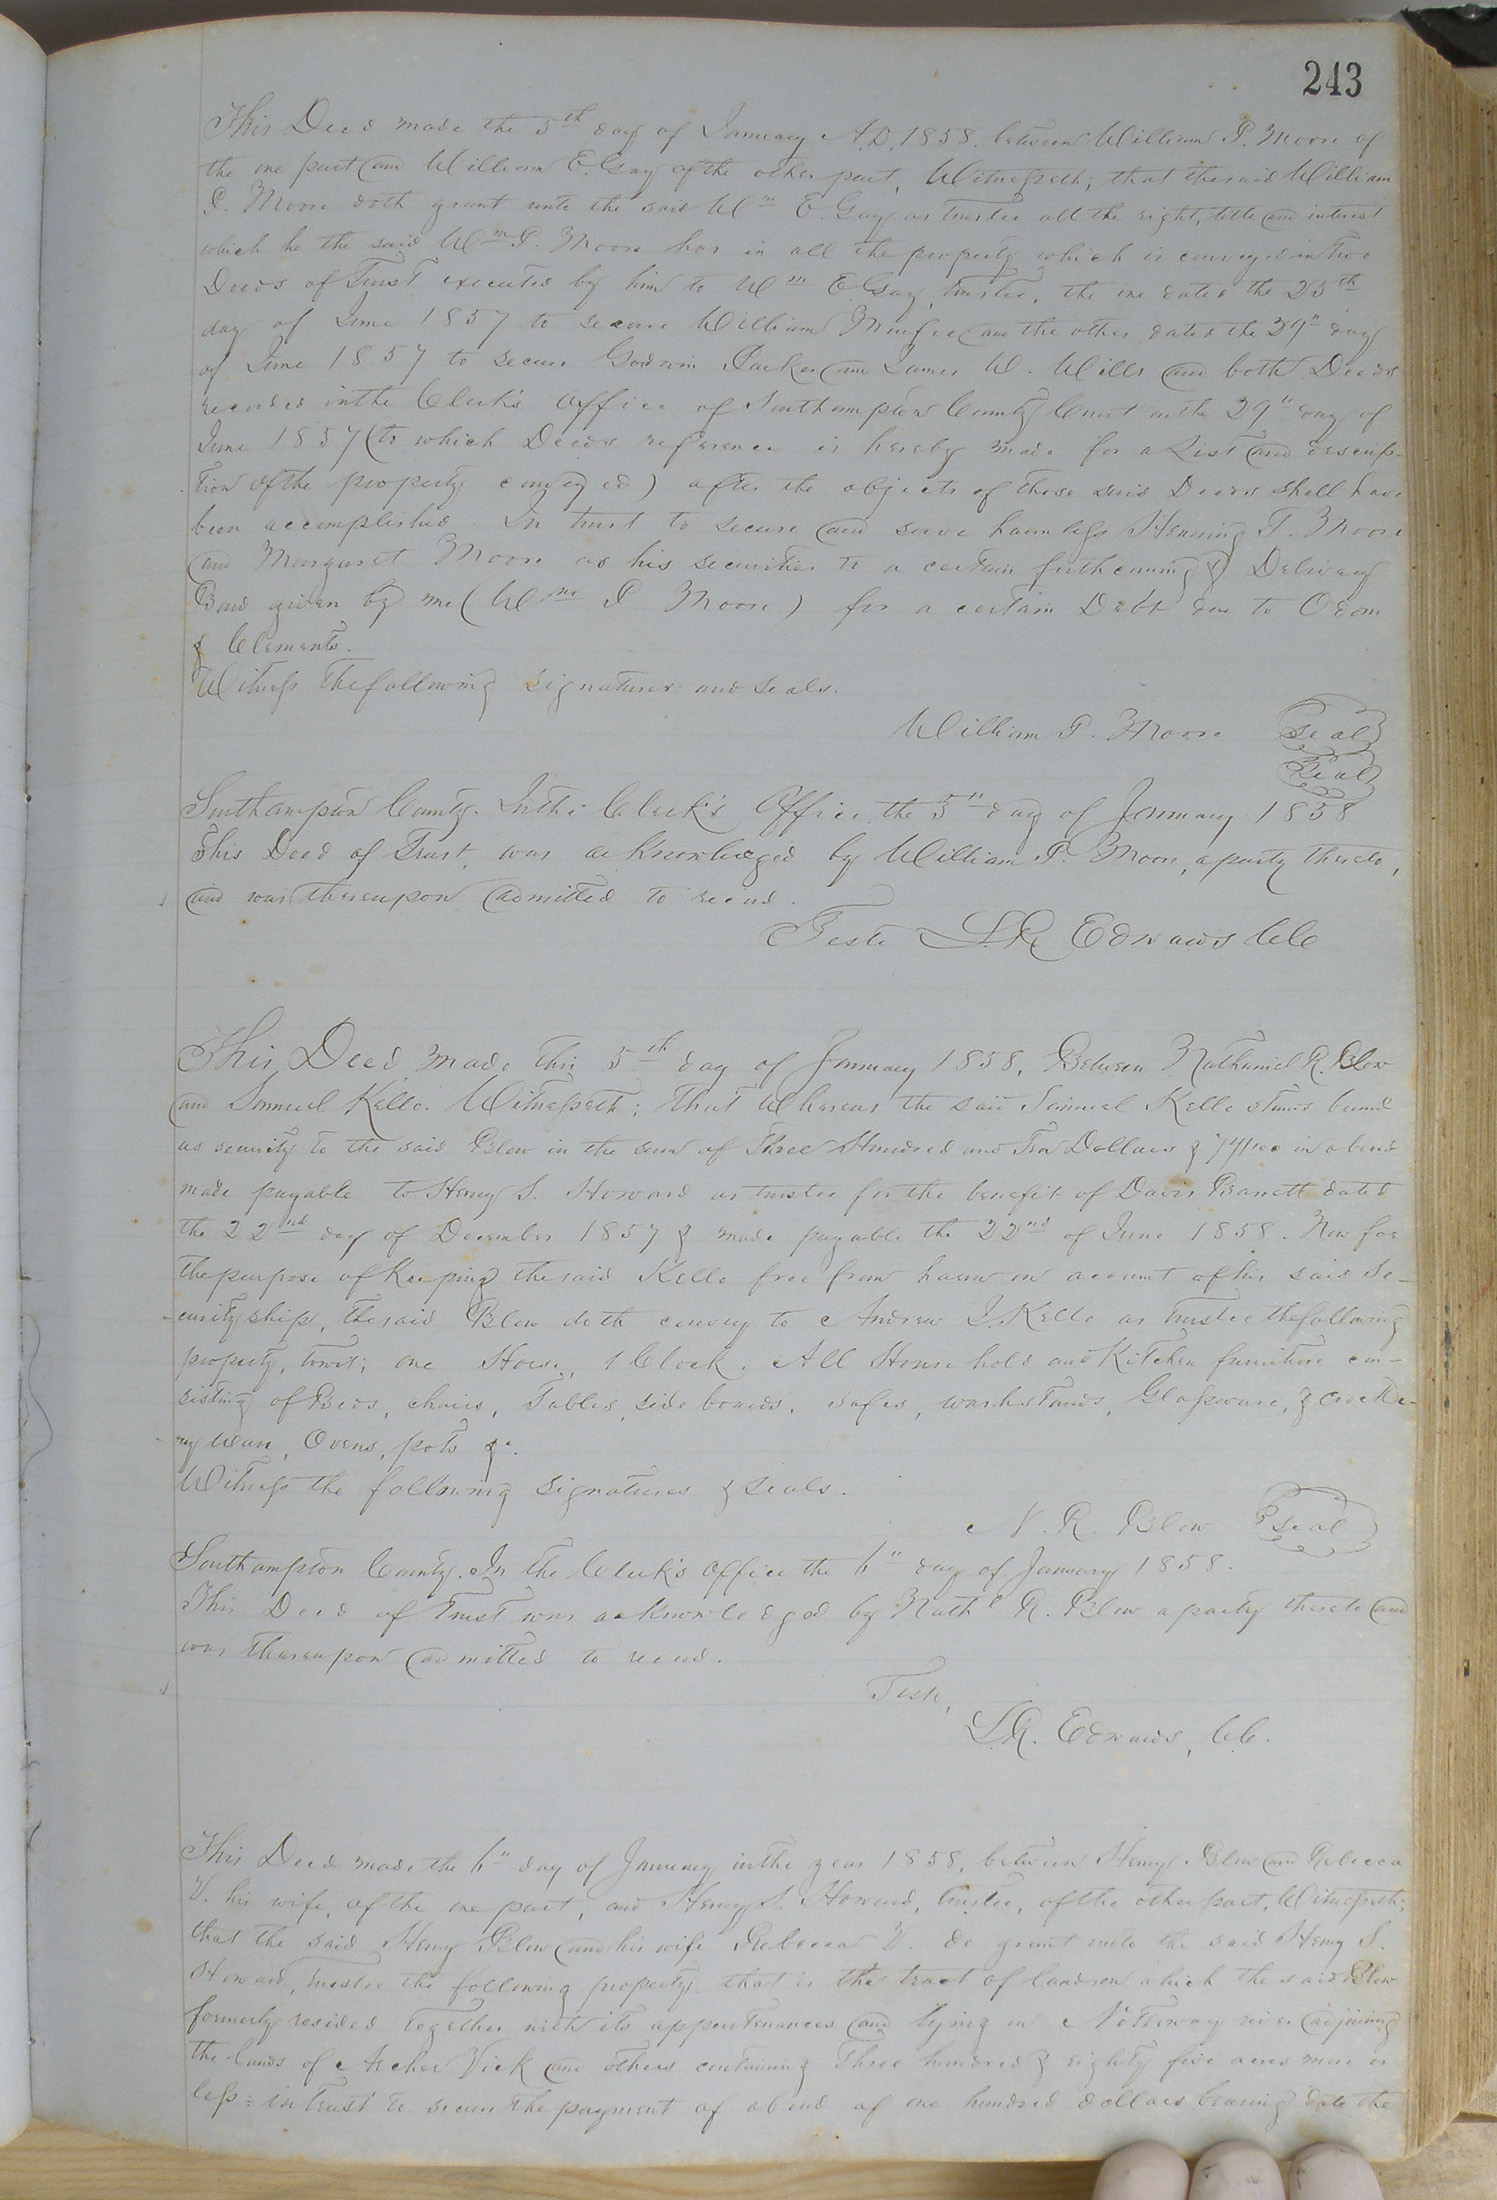 243
This Deed made the 5th day of January A.D. 1858. between William P. Moore of
the one part and William E. Gay of the other part, Witnesseth; that the said William
P. Moore doth grant unto the said Wm E. Gay as trustee all the right, title and interest
which he the said Wm P. Moore has in all the property which is conveyed in two
Deeds of Trust executed by him to Wm E. Gay, trustee, the one dated the 25th
day of June 1857 to secure William and the other dated the 29" day
of June 1857 to secure Godwin Parker and James W. Wills and both Deeds
recorded in the Clerk's Office of Southampton County Court on the 29" day of
June 1857 (to which Deeds reference is hereby made for a List and descrip-
tion of the property conveyed) after the objects of those said Deeds shall have
been accomplished In trust to secure and save harmless Henning T. Moore
and Margaret Moore as his securities to a certain forthcoming & Delivery
Bond given by me (Wm P Moore) for a certain Debt due to Odom
& Clements.
Witness the following signatures and seals.
William P. Moore Seal
Seal
Southampton County. In the Clerk's Office the 5" day of January 1858
This Deed of Trust, was acknowledged by William P. Moore, a party thereto,
and was thereupon admitted to record.
Teste L.R. Edwards CC
This Deed made this 5th day of January 1858, Between Nathaniel R. Blow
and Samuel Kello. Witnesseth; that Whereas the said Samuel Kello stands bound
as security to the said Blow in the sum of Three Hundred and Ten Dollars & 74/100 in a bond
made payable to Henry S. Howard as trustee for the benefit of Davis Barrett dated
the 22nd day of December 1857 & made payable the 22nd of June 1858. Now for
the purpose of keeping the said Kello free from harm on account of his said se-
curityship, the said Blow doth convey to Andrew J. Kello as trustee the following
property, towit; one Horse, 1 Clock. All House hold and Kitchen furniture con-
sisting of Beds, chairs, Tables, side boards, safes, washstands, Glassware, & crocke-
ry ware, Ovens, pots &c.
Witness the following signatures & seals.
N. R. Blow Seal
Southampton County. In the Clerk's Office the 6" day of January 1858.
This Deed of trust was acknowledged by Nathl R. Blow a party thereto and
was thereupon admitted to record.
Teste,
L.R. Edwards, CC.
This Deed made the 6" day of January in the year 1858, between Henry Blow and Rebecca
V. his wife, of the one part, and Henry S. Howard, trustee, of the other part, Witnesseth;
that the said Henry Blow and his wife Rebecca V. do grant unto the said Henry S.
Howard, trustee the following property that is the tract of land on which the said Blow
formerly resided together with its appurtenances and lying on Nottoway river adjoining
the lands of Archer Vick and others containing Three hundred & eighty five acres more or
less = in trust to secure the payment of a bond of one hundred dollars bearing date the